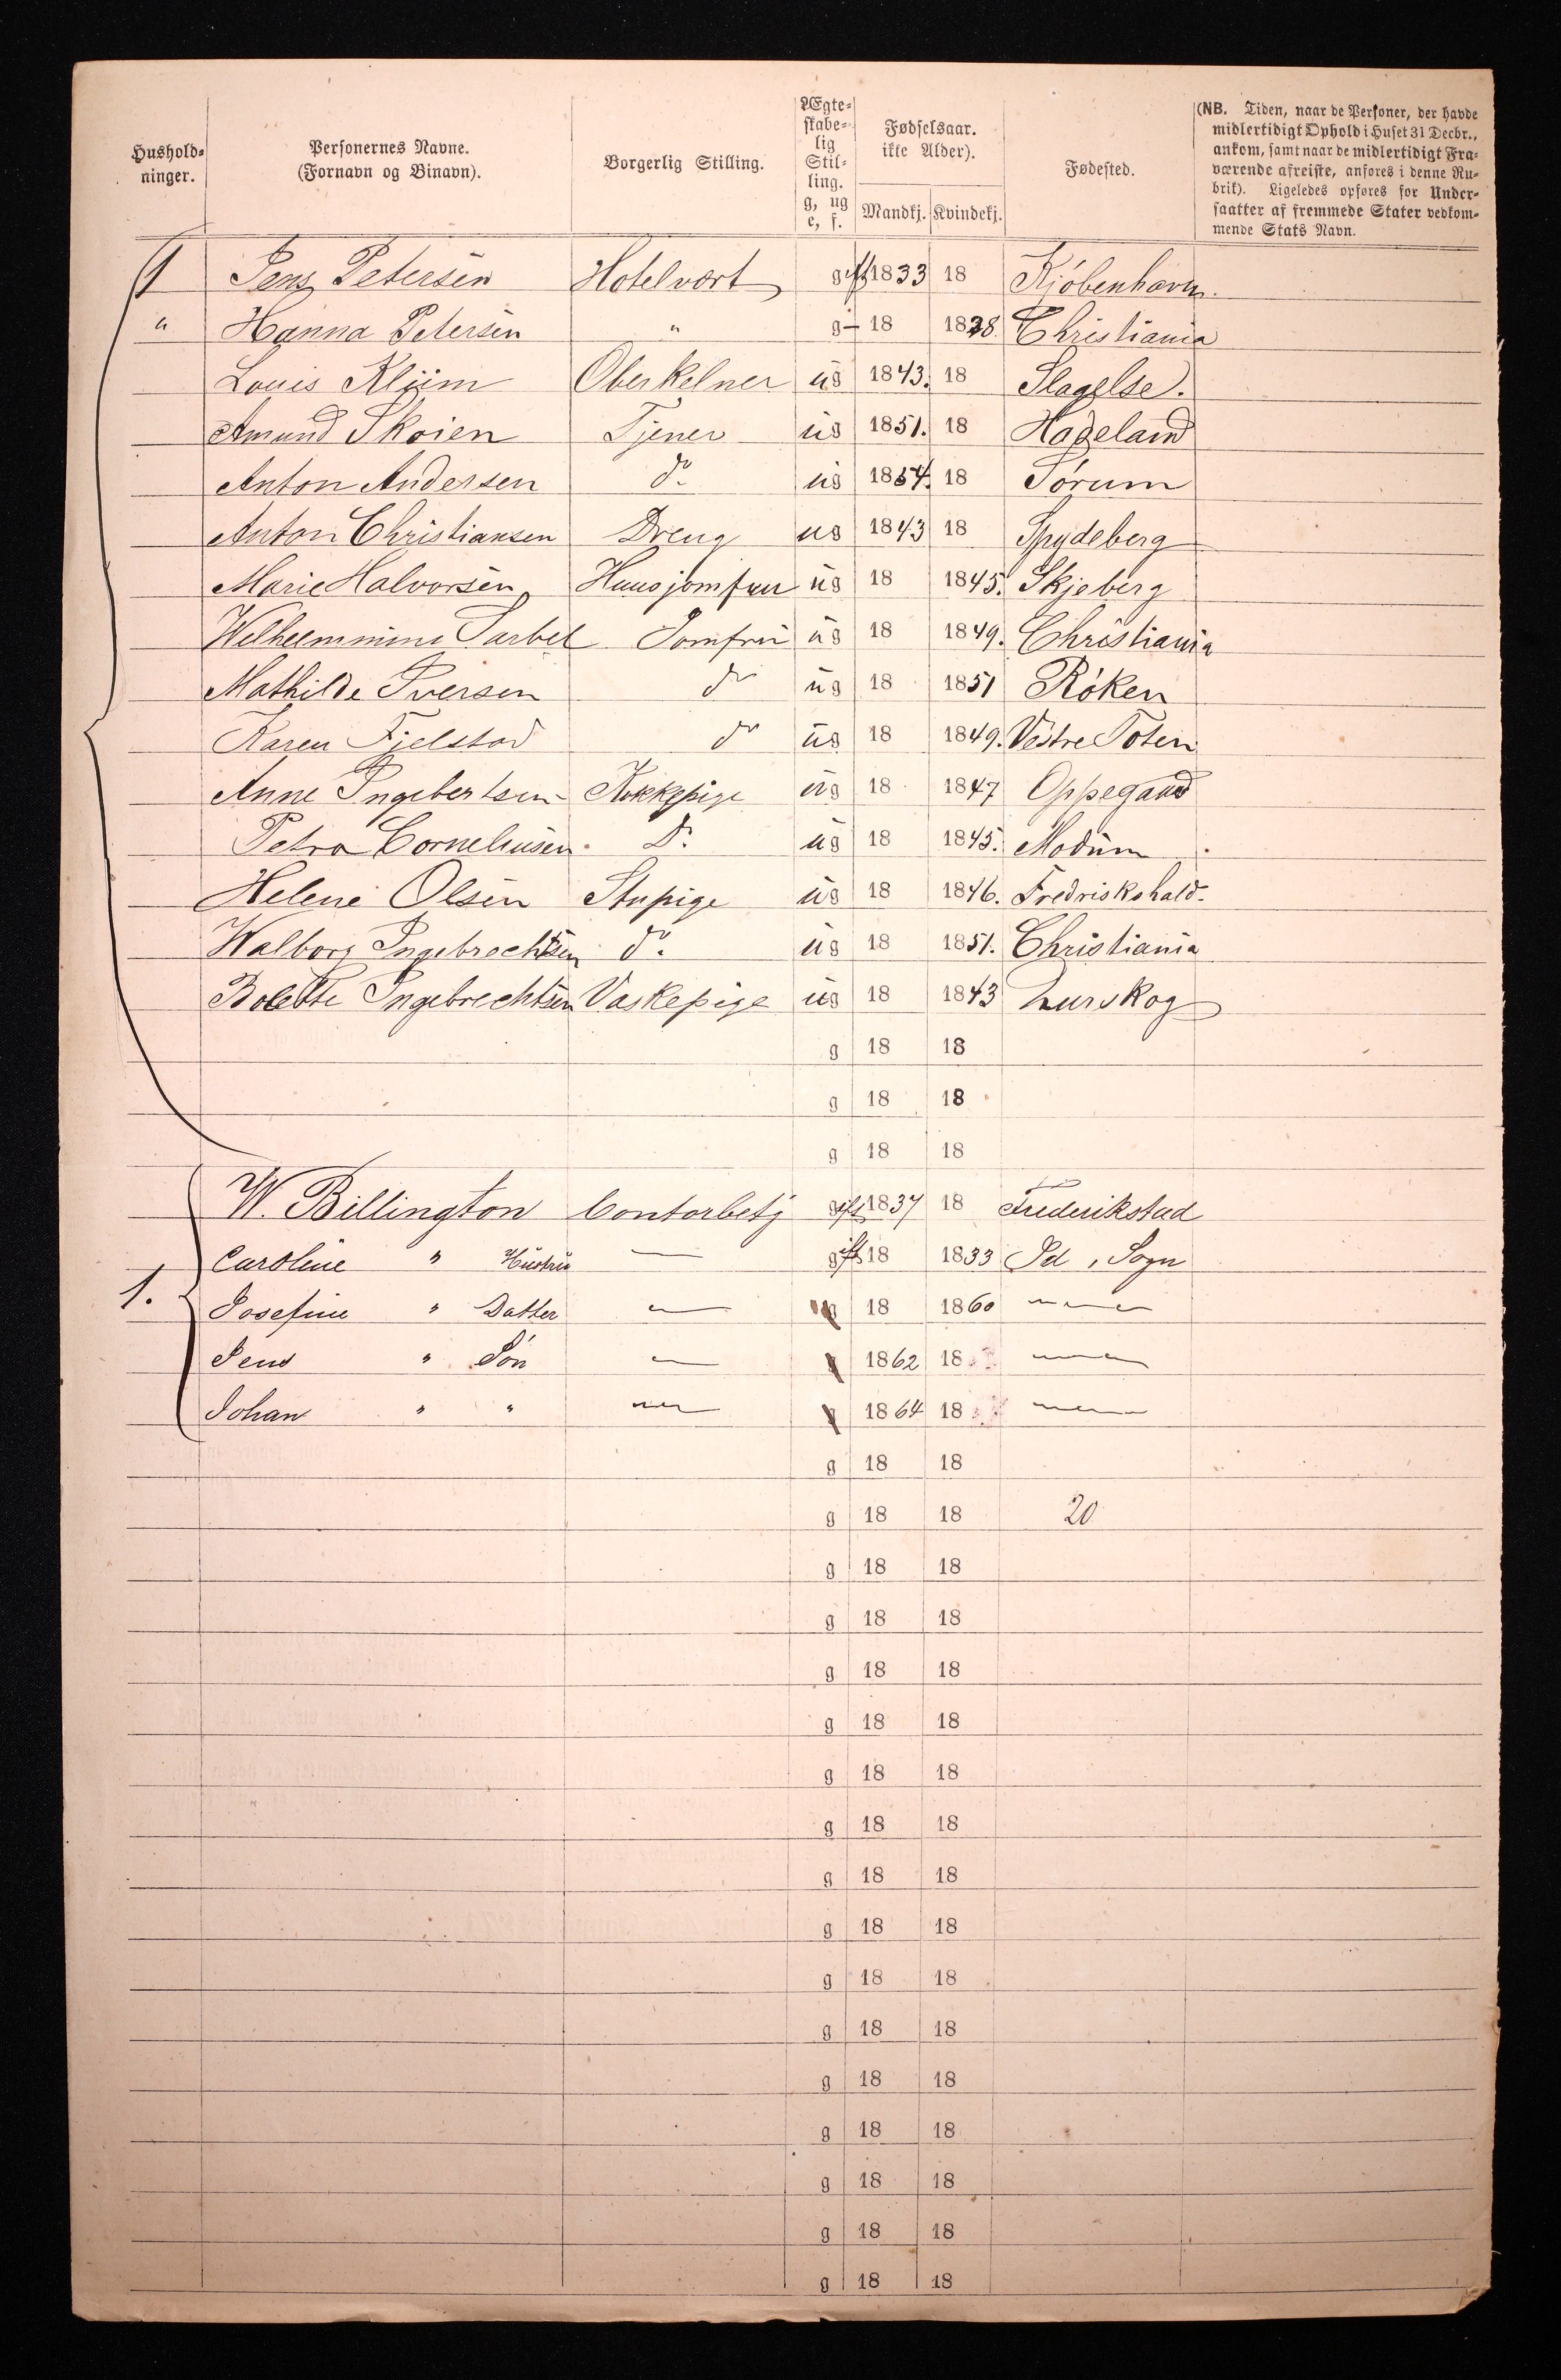 Hushold-
ninger.
Personernes Navne.
(Fornavn og Binavn).
Borgerlig Stilling.
Ægte-
skabe-
lig
Stil-
ling.
g, ug
e, f.
Fødselsaar.
ikke Alder).
Mandkj. Kvindekj.
Fødested.
(NB. Tiden, naar de Personer, der havde
midlertidigt Ophold i Huset 31 Decbr.,
ankom, samt naar de midlertidigt Fra-
værende afreiste, anføres i denne Ru-
brik). Ligeledes opføres for Under-
saatter af fremmede Stater vedkom-
mende Stats Navn.
1 Jens Petersen Hotelvært gift 1833 18 Kjøbenhavn.
" Hanna Petersen " g- 18 1838. Christiania
Louis Klüm Oberkelner ug 1843. 18 Slagelse.
Amund Skoien Tjener ug 1851. 18 Hadeland
Anton Andersen do. ug 1854. 18 Sørum
Anton Christiansen Dreng ug 1843 18 Spydeberg
Marie Halvorsen Huusjomfru ug 18 1845. Skjeberg
Wilhelmmine Sarbel Jomfru ug 18 1849. Christiania
Mathilde Iversen do ug 18 1851 Røken
Karen Fjelstad do ug 18 1849. Vestre Toten
Anne Ingebertsen Kokkepige ug 18 1847 Oppegaard
Petra Corneliusen. Do. ug 18 1845. Modum
Helene Olsen Stupige ug 18 1846. Fredrikshald.
Walborg Ingebrechtsen do. ug 18 1851. Christiania
Bolette Ingebrechtsen Vaskepige ug 18 1843 Hurskog
g 18 18
g 18 18
g 18 18
W. Billington Contorbetj gift 1837 18 Frederikstad
Caroline " Hustru — gift 18 1833 Id, Sogn
1. Josefine " Datter — g 18 1860 —
Jens " Søn — g 1862 18 —
Johan " " — g 1864 18 —
g 18 18
g 18 18 20
g 18 18
g 18 18
g 18 18
g 18 18
g 18 18
g 18 18
g 18 18
g 18 18
g 18 18
g 18 18
g 18 18
g 18 18
g 18 18
g 18 18
g 18 18